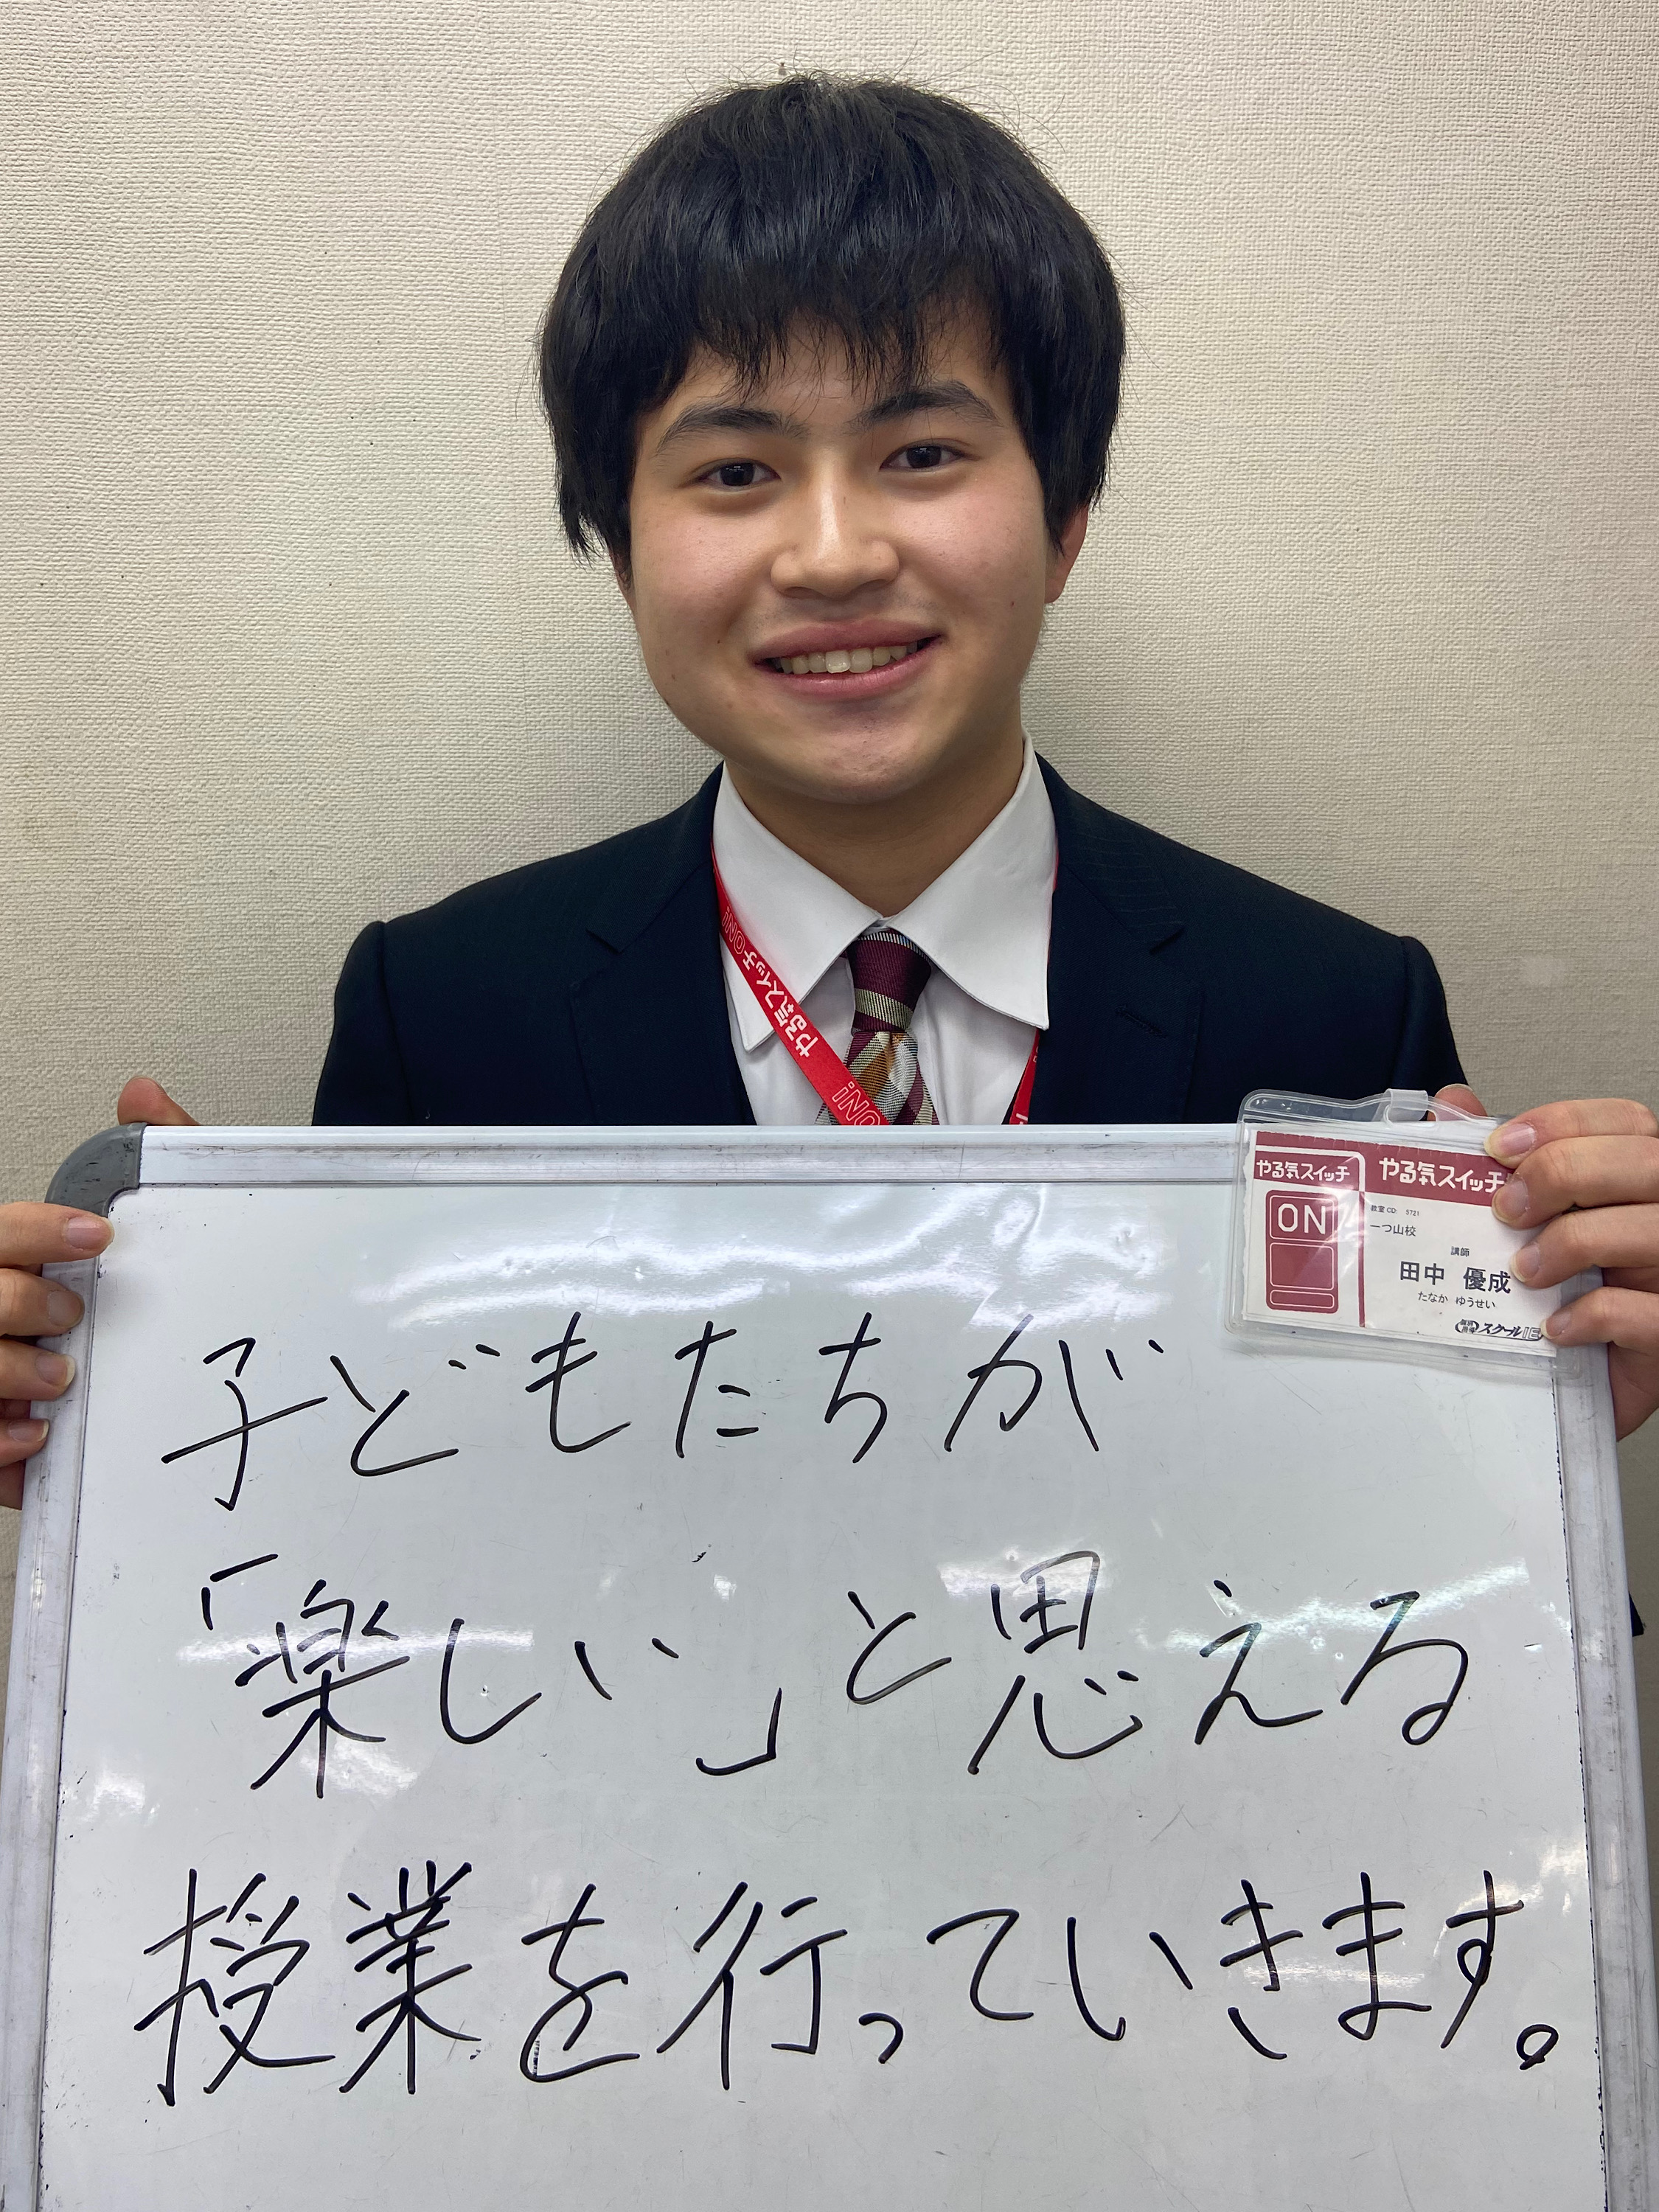 やる気スイッチON!
ON!
やる気スイッチ
ON
やる気スイッチ
教室CD: 5721
一つ山校
講師
田中 優成
たなか ゆうせい
個別指導 スクールIE
子どもたちが
「楽しい」と思える
授業を行っていきます。